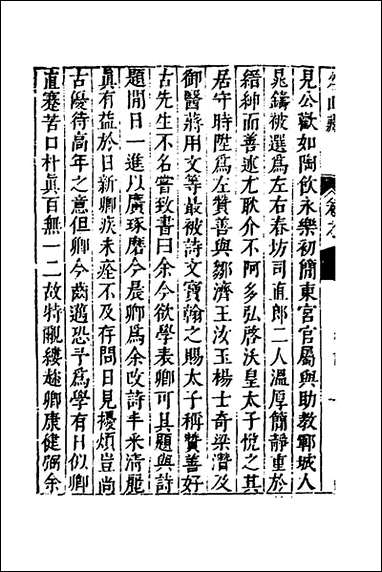 見公歡如陶飲永樂初簡東宮官屬與助教鄆城人
晁鑄被選爲左右春坊司直郎二人溫厚簡靜重於
縉紳而善述尤耿介不阿多弘啓沃皇太子悅之其
居守時陞爲左贊善與鄒濟王汝玉楊士奇梁潛及
御醫蔣用文等最被詩文寶翰之賜太子稱贊善好
古先生不名嘗致書曰余今欲學表卿可具題與詩
題間日一進以廣琢磨今晨卿爲余改詩半米清麗
眞有益於日新卿疾未痊不及存問日見擾煩豈尚
古優待高年之意但卿今齒邁恐予爲學有日似卿
直蹇苦口朴眞百無一二故特覼縷趂卿康健弼余